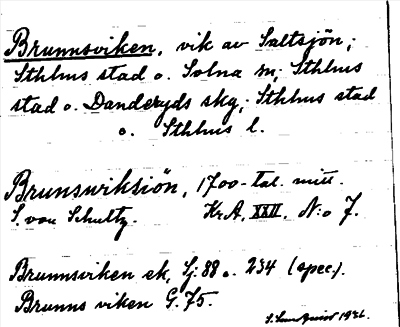 Brunnsviken, vik av Saltsjön;
Sthlms stad o. Solna sn; Sthlms
stad o. Danderyds skg; Sthlms stad
o. Sthlms l.
Brunswiksiön, 1700-tal. mitt.
S. von Schultz. Kr.A. XXII. N:o 7.
Brunnsviken ek, Sj. 88 o. 234 (spec.).
Brunns viken G.75.